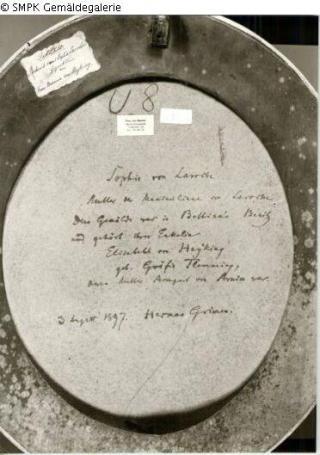 © SMPK Gemäldegalerie
U 8
Sophie von Laroche
Mutter der Maximiliane von Laroche.
Dies Gemälde war in Bettina's Besitz
und gehört ihrer Enkelin
Elisabeth von Heyking
geb. Gräfin Flemming,
deren Mutter Armgart von Arnim war.
3 August 1897. Herman Grimm.